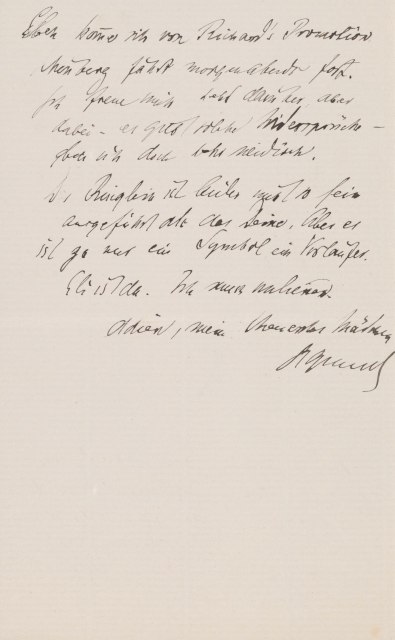 Eben komme ich von Richard's Promotion
Nürnberg fährt morgen abends fort.
Ich freue mich sehr darüber, aber
dabei – es gibt solche Widersprüche –
bin ich doch sehr neidisch.
Das Ringlein ist leider nicht so fein
ausgeführt als das Deine. Aber es
ist ja nur ein Symbol ein Vorläufer.
Eli ist da. Ich muss
Adieu, mein theuerstes Mädchen